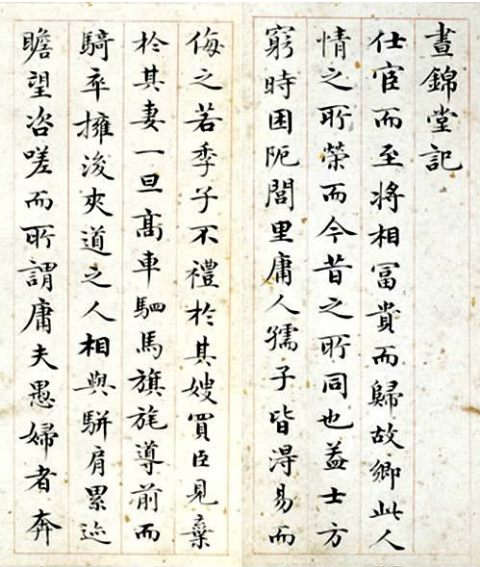 晝錦堂記
仕宦而至将相冨貴而歸故鄉此人
情之所榮而今昔之所同也盖士方
窮時困阨閭里庸人孺子皆得易而
侮之若季子不禮於其嫂買臣見棄
於其妻一旦髙車駟馬旗旄導前而
騎卒擁後夾道之人相與駢肩累迹
瞻望咨嗟而所謂庸夫愚婦者奔